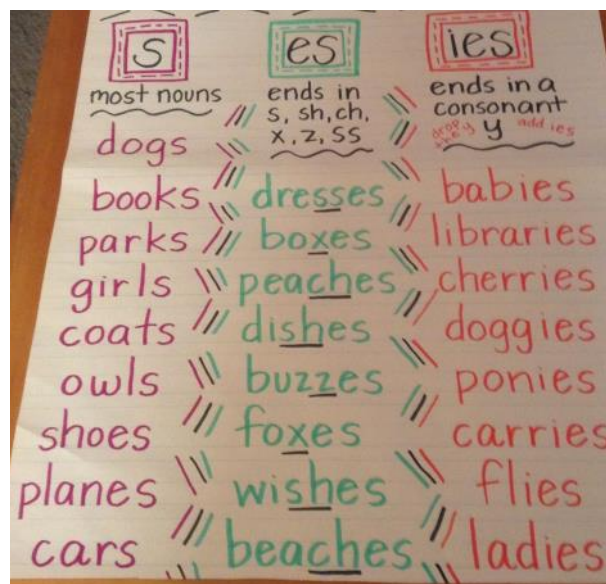 s
most nouns
dogs
books
parks
girls
coats
owls
shoes
planes
cars
es
ends in
s, sh, ch,
x, z, ss
dresses
boxes
peaches
dishes
buzzes
foxes
wishes
beaches
ies
ends in a
consonant
drop the y
y
add ies
babies
libraries
cherries
doggies
ponies
carries
flies
ladies